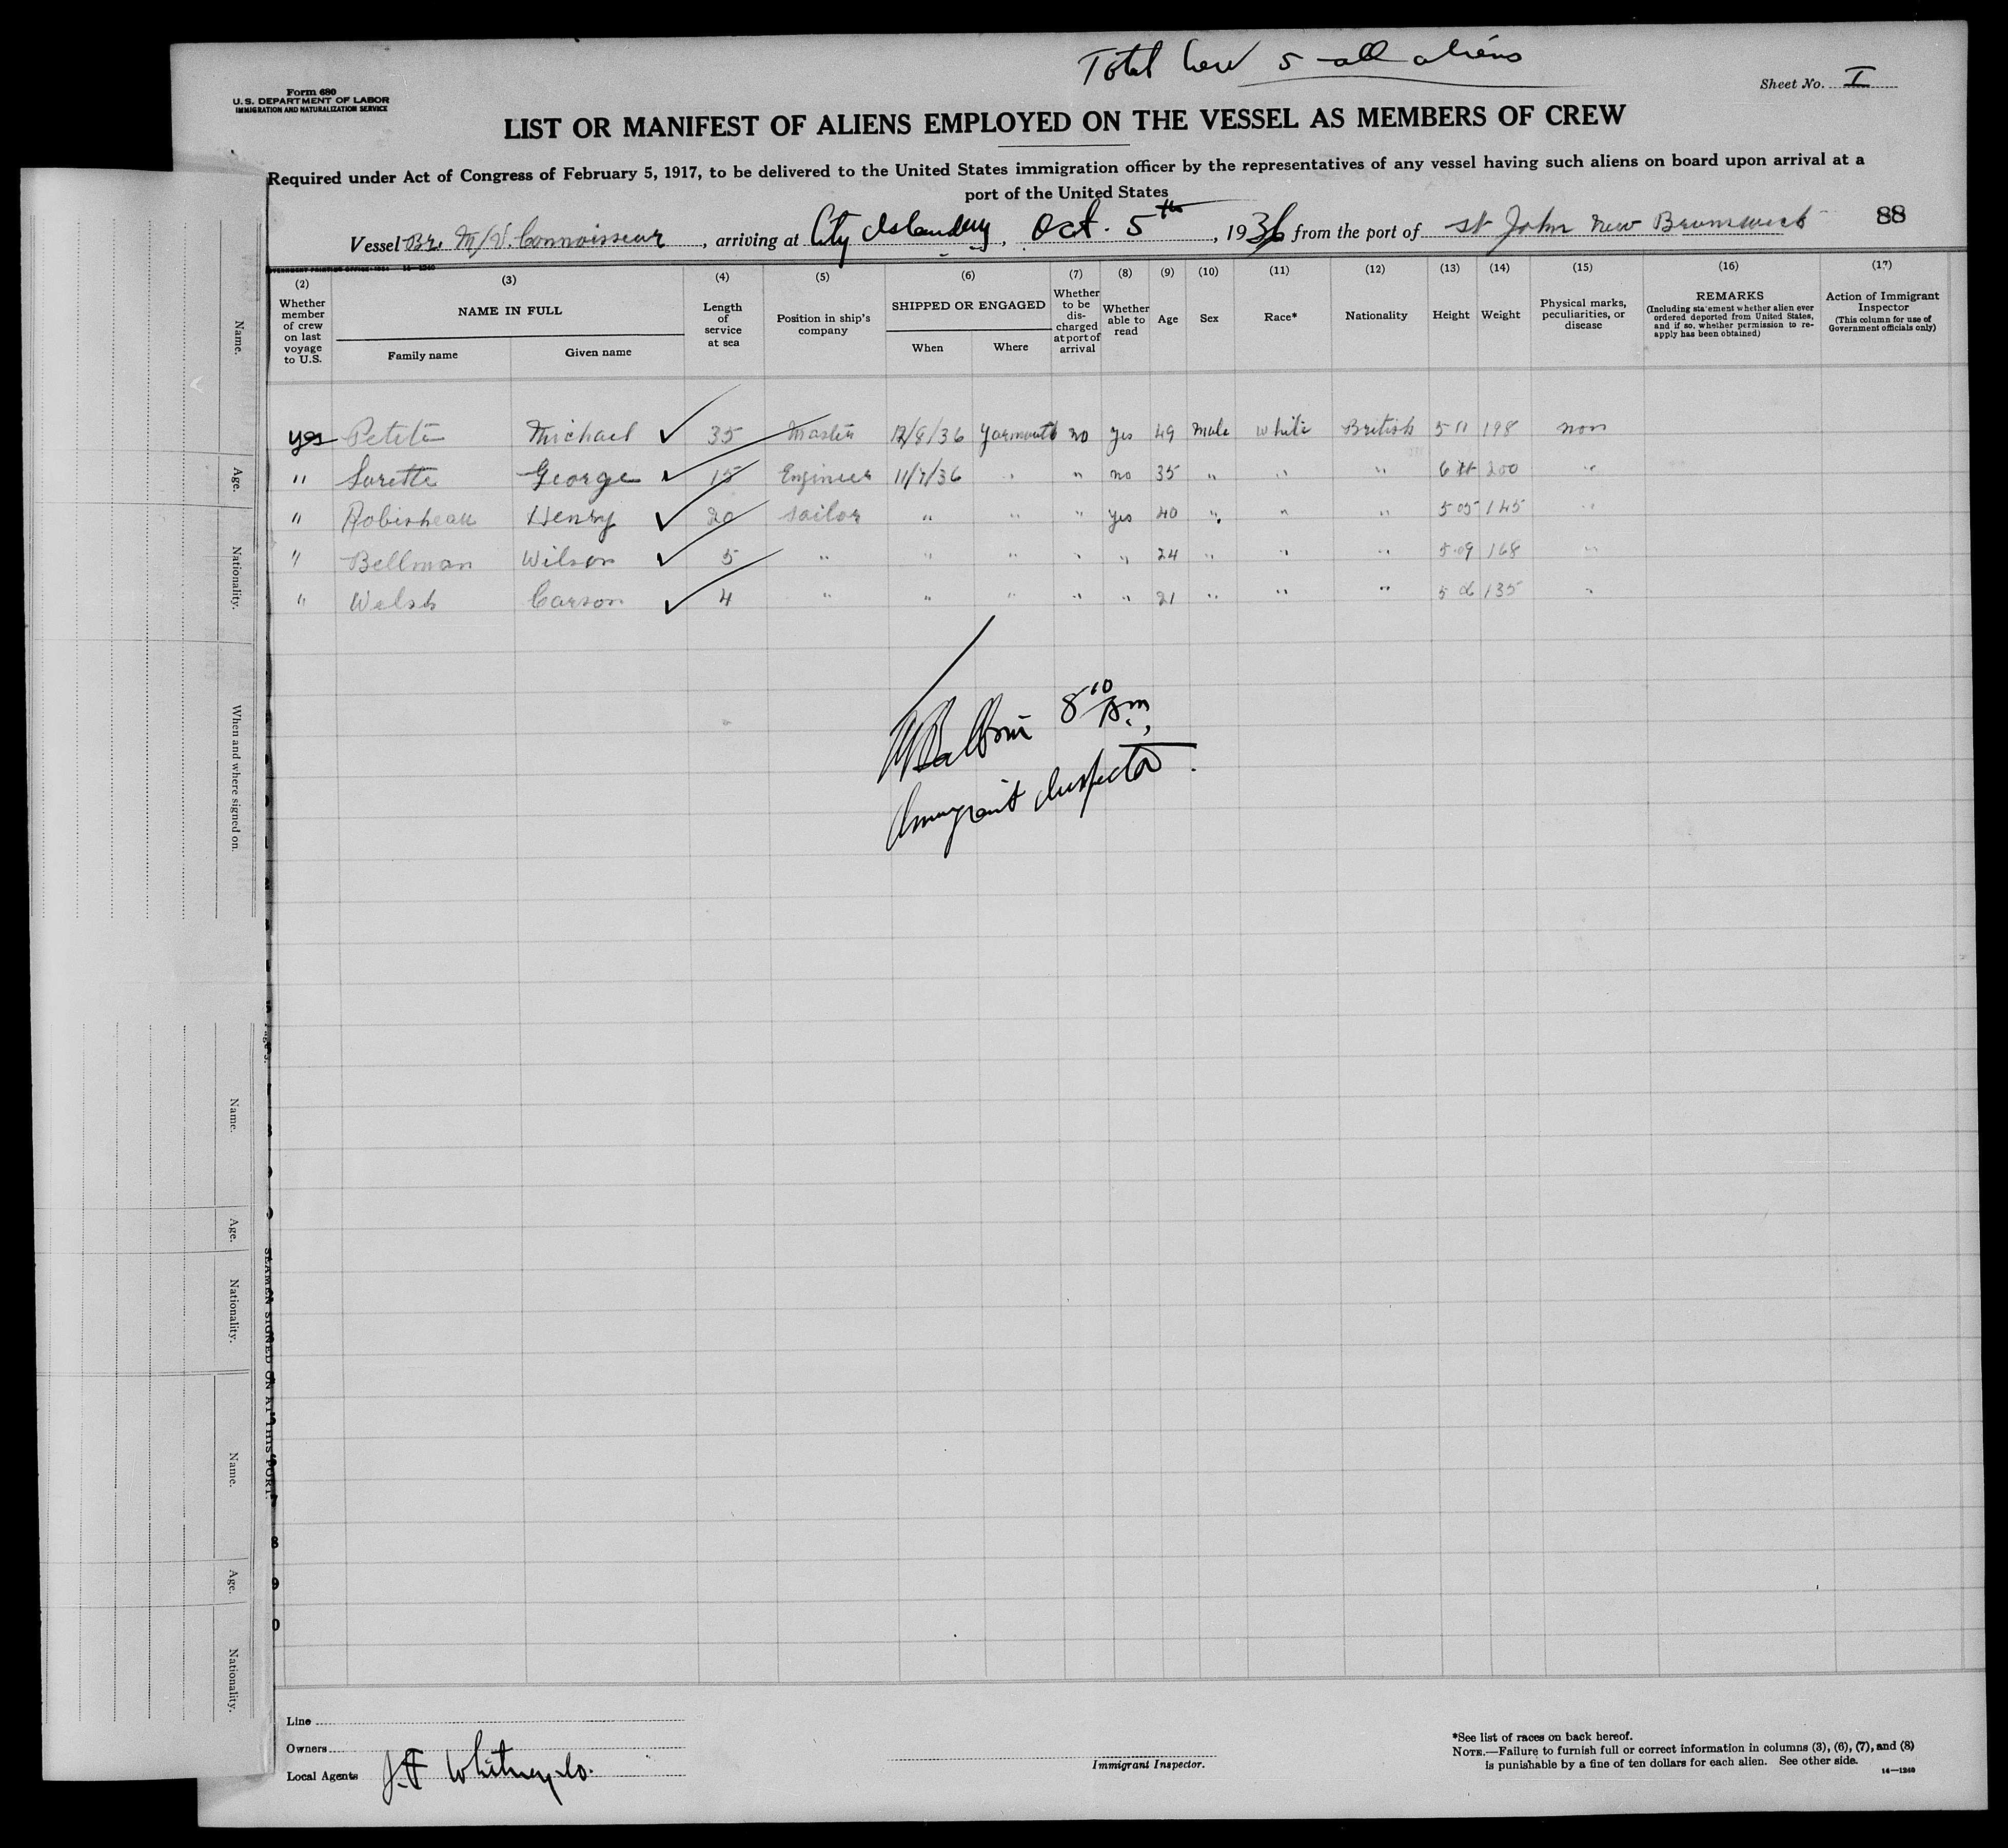 Total Crew 5 all aliens
Form 680
U.S. DEPARTMENT OF LABOR
IMMIGRATION AND NATURALIZATION SERVICE
Sheet No. I
LIST OR MANIFEST OF ALIENS EMPLOYED ON THE VESSEL AS MEMBERS OF CREW
Required under Act of Congress of February 5, 1917, to be delivered to the United States immigration officer by the representatives of any vessel having such aliens on board upon arrival at a
port of the United States
Vessel Br. M/V. Connoisseur, arriving at City Island NY, Oct. 5th, 1936 from the port of St John New Brunswick
88
(2) (3) (4) (5) (6) (7) (8) (9) (10) (11) (12) (13) (14) (15) (16) (17)
Whether member of crew on last voyage to U.S.
NAME IN FULL
Family name
Given name
Length of service at sea
Position in ship's company
SHIPPED OR ENGAGED
When
Where
Whether to be discharged at port of arrival
Whether able to read
Age
Sex
Race*
Nationality
Height
Weight
Physical marks, peculiarities, or disease
REMARKS
(Including statement whether alien ever ordered deported from United States, and if so, whether permission to reapply has been obtained)
Action of Immigrant Inspector
(This column for use of Government officials only)
yes Michael 35 Master 12/8/36 Yarmouth no yes 49 Male White British 5 11 198 non
" Surette George 15 Engineer 11/7/36 " " no 35 " " " 6 ft 200 "
" Henry 20 Sailor " " " yes 40 " " " 5 05 145 "
" Bellman Wilson 5 " " " " " 24 " " " 5 09 168 "
" Welsh Carson 4 " " " " " 21 " " " 5 06 135 "
8 10
Immigrant Inspector
Name.
Age.
Nationality.
When and where signed on.
Name.
Age.
Nationality.
Name.
Age.
Nationality.
SEAMEN SIGNED ON AT THIS PORT.
Line
Owners
Local Agents J.F. Whitney Co.
Immigrant Inspector.
*See list of races on back hereof.
NOTE.—Failure to furnish full or correct information in columns (3), (6), (7), and (8)
is punishable by a fine of ten dollars for each alien. See other side.
14—1240